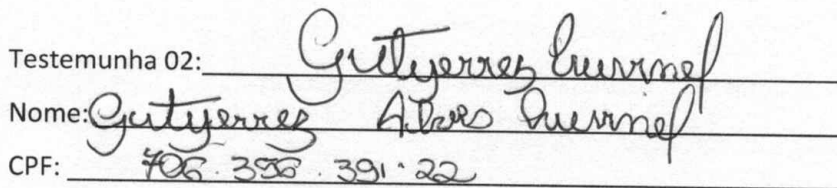 Testemunha 02: Gutyerrez Cruvinel
Nome: Gutyerrez Alves Cruvinel
CPF: 706.356.391-22